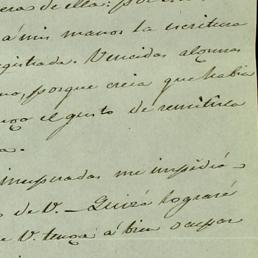 era de ella: por
á mis manos la escritura
gistrada. Vencidas algunas
no, porque creia que habia
ngo el gusto de remitirla
a.
inesperadas me impidió
o de V. — Quizá lograré
e V. tenga á bien ocupar